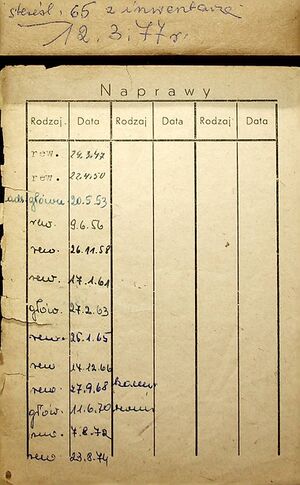 skreśl. 65 z inwentarza
12.3.77 r.
Naprawy
Rodzaj Data Rodzaj Data Rodzaj Data
rew. 24.3.47
rew. 22.4.50
główna 20.5.53
rew. 9.6.56
rew. 26.11.58
rew. 17.1.61
głów. 27.2.63
rew. 26.1.65
rew 14.12.66
rew. 27.9.68
głów. 11.6.70
rew. 7.8.72
rew 23.8.74